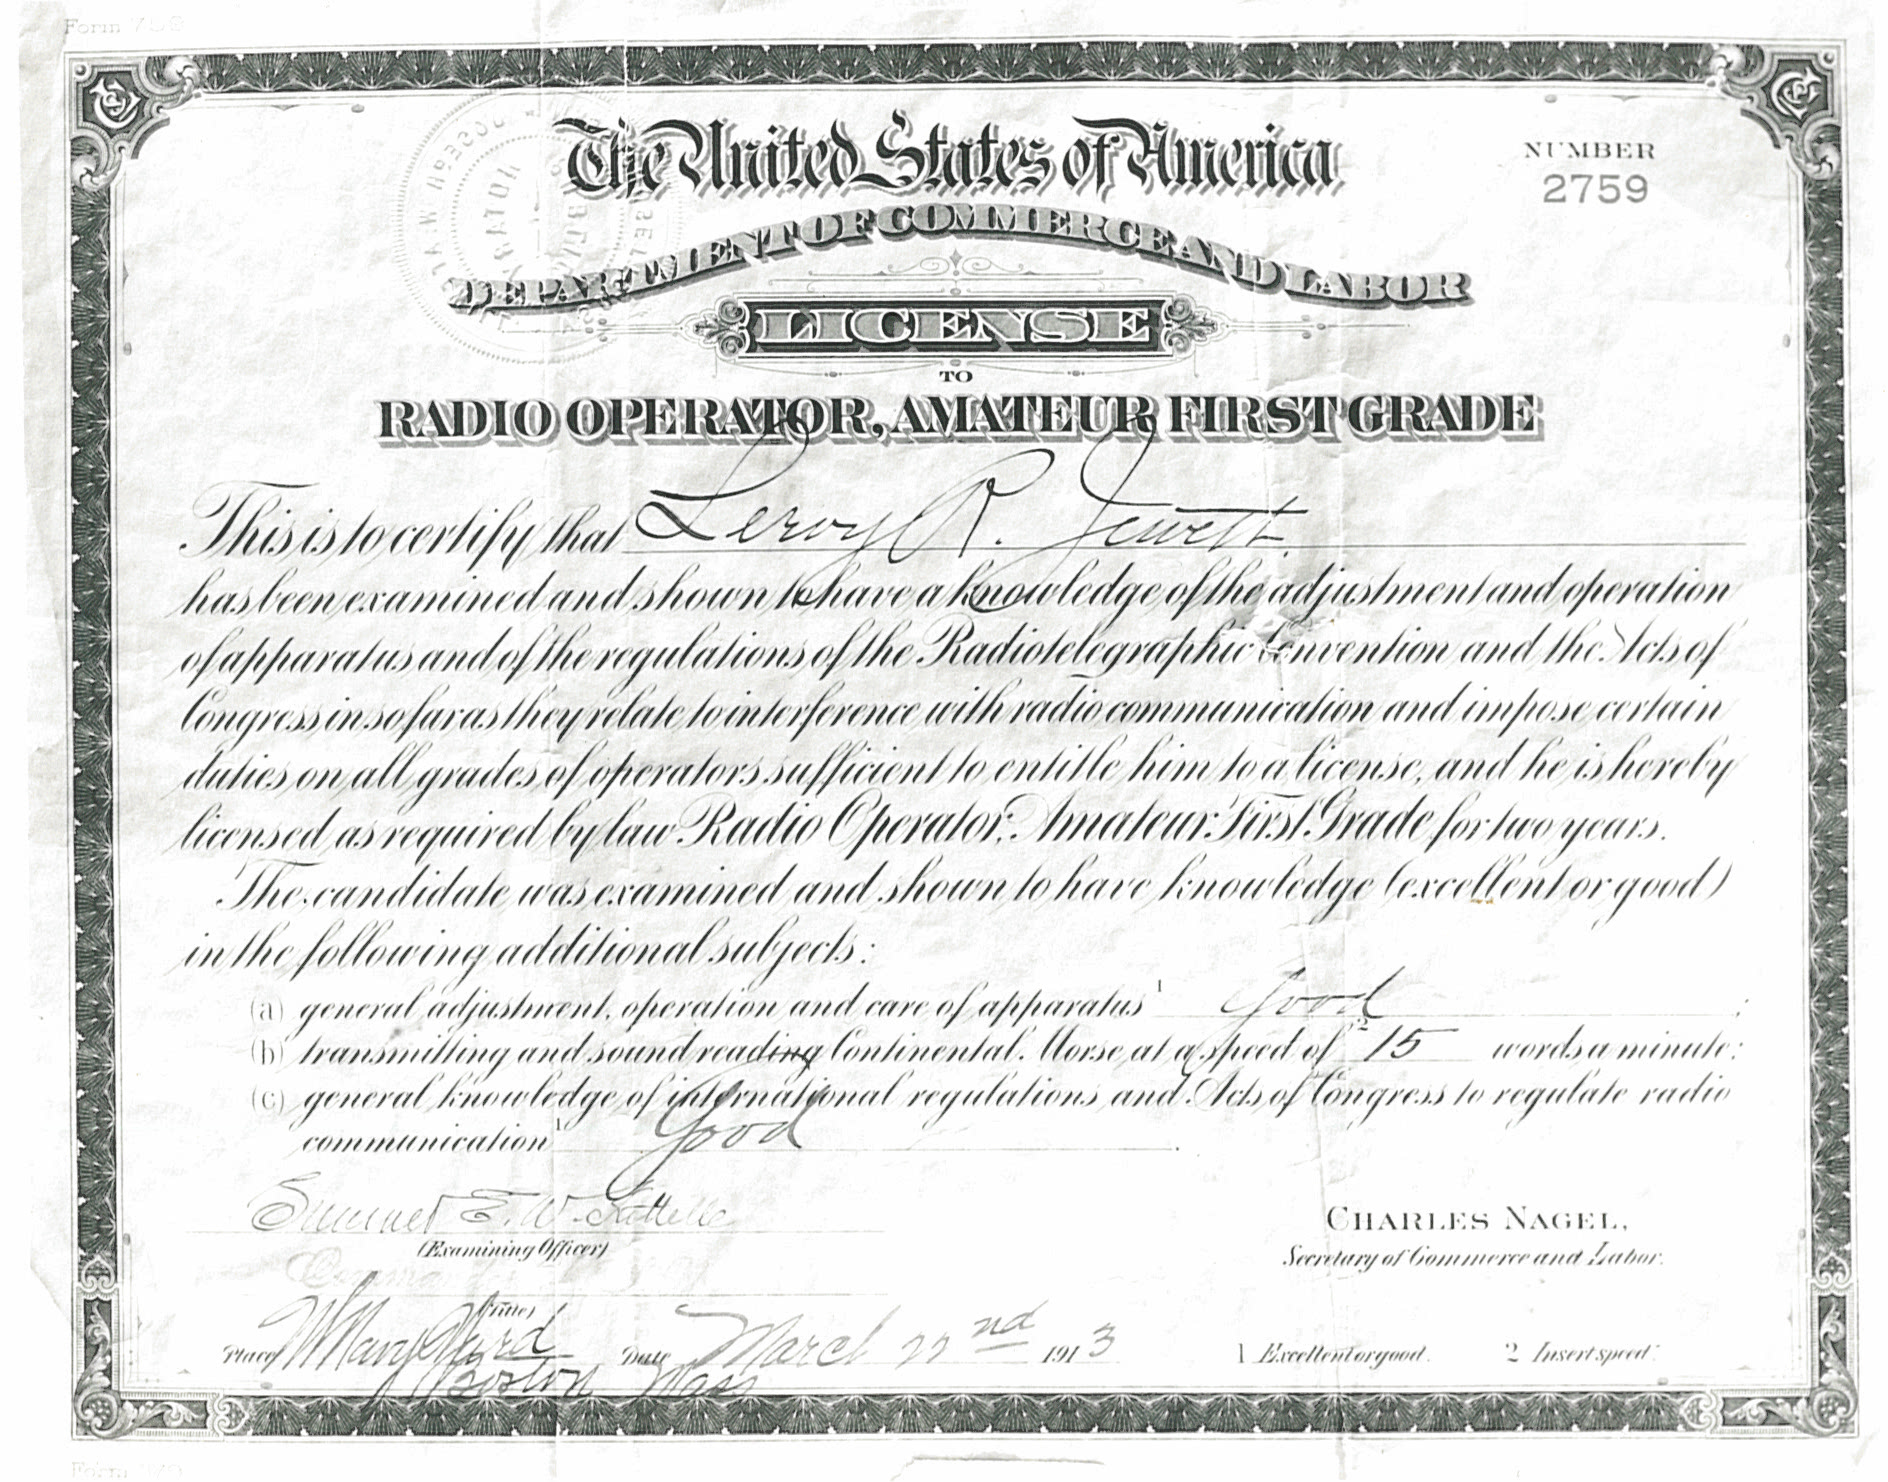 Form 756
The United States of America
NUMBER
2759
DEPARTMENT OF COMMERCE AND LABOR
LICENSE
TO
RADIO OPERATOR, AMATEUR FIRST GRADE
This is to certify that Leroy R. Jewett.
has been examined and shown to have a knowledge of the adjustment and operation
of apparatus and of the regulations of the Radiotelegraphic Convention and the Acts of
Congress in so far as they relate to interference with radio communication and impose certain
duties on all grades of operators sufficient to entitle him to a license, and he is hereby
licensed as required by law Radio Operator, Amateur First Grade for two years.
The candidate was examined and shown to have knowledge (excellent or good)
in the following additional subjects:
(a) general adjustment, operation and care of apparatus¹ Good ;
(b) transmitting and sound reading Continental Morse at a speed of ² 15 words a minute;
(c) general knowledge of international regulations and Acts of Congress to regulate radio
communication¹ Good .
E. W.
(Examining Officer)
CHARLES NAGEL,
Secretary of Commerce and Labor.
(Title)
Place Navy Yard Date March 22nd 1913
Boston Mass
1 Excellent or good. 2 Insert speed.